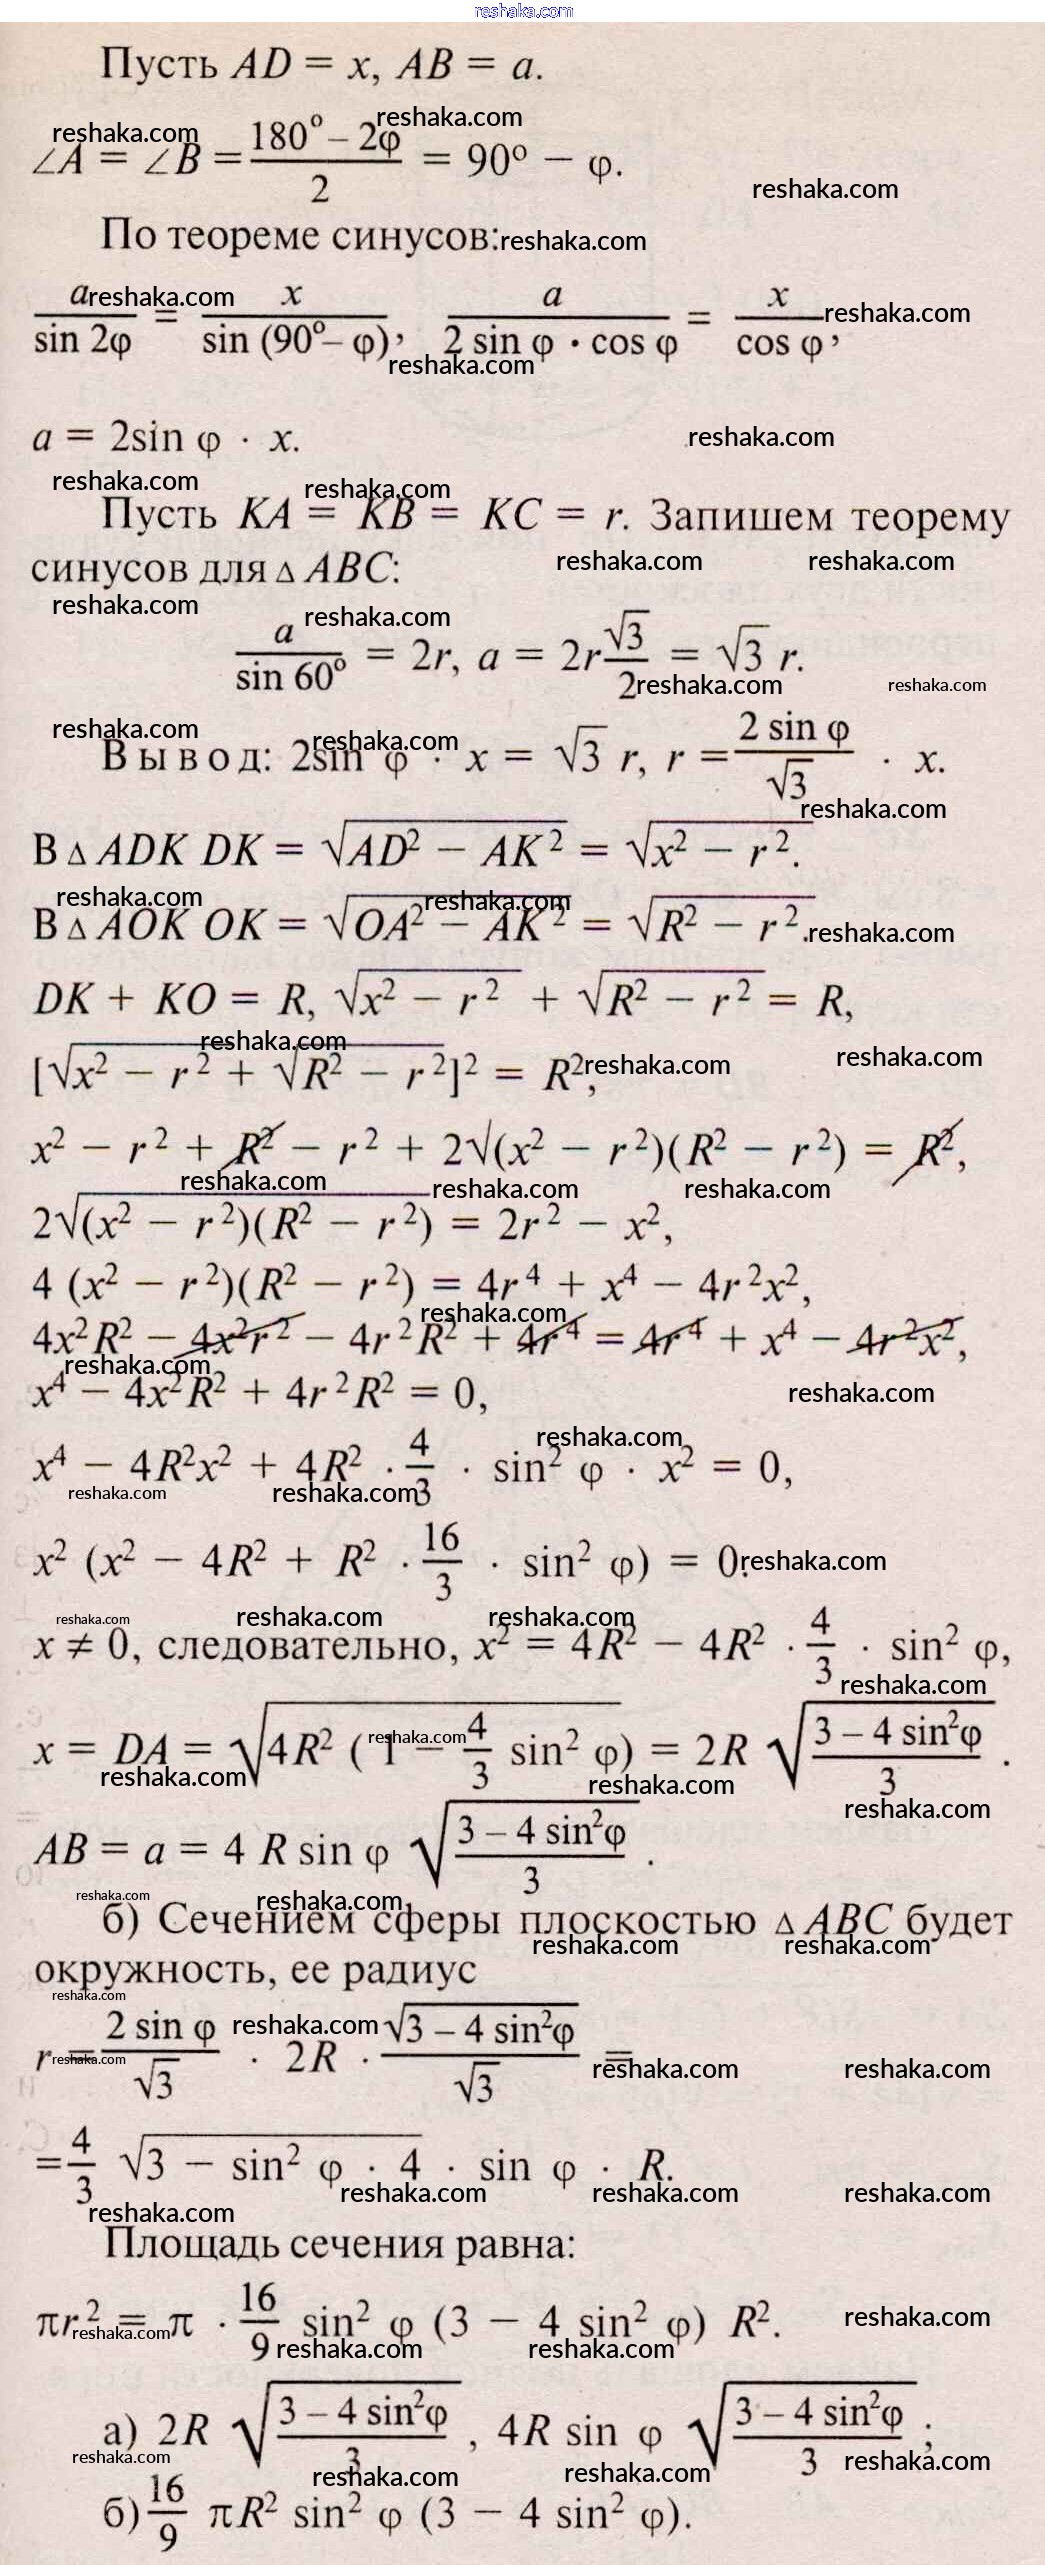 reshaka.com
Пусть AD = x, AB = a.
∠A = ∠B = (180° – 2φ)/2 = 90° – φ.
По теореме синусов:
a/sin 2φ = x/sin (90° – φ), a/(2 sin φ · cos φ) = x/cos φ,
a = 2sin φ · x.
Пусть KA = KB = KC = r. Запишем теорему
синусов для △ ABC:
a/sin 60° = 2r, a = 2r √3/2 = √3 r.
Вывод: 2sin φ · x = √3 r, r = (2 sin φ)/√3 · x.
В △ ADK DK = √(AD² – AK²) = √(x² – r²).
В △ AOK OK = √(OA² – AK²) = √(R² – r²).
DK + KO = R, √(x² – r²) + √(R² – r²) = R,
[√(x² – r²) + √(R² – r²)]² = R²,
x² – r² + R² – r² + 2√(x² – r²)(R² – r²) = R²,
2√(x² – r²)(R² – r²) = 2r² – x²,
4 (x² – r²)(R² – r²) = 4r⁴ + x⁴ – 4r²x²,
4x²R² – 4x²r² – 4r²R² + 4r⁴ = 4r⁴ + x⁴ – 4r²x²,
x⁴ – 4x²R² + 4r²R² = 0,
x⁴ – 4R²x² + 4R² · 4/3 · sin² φ · x² = 0,
x² (x² – 4R² + R² · 16/3 · sin² φ) = 0.
x ≠ 0, следовательно, x² = 4R² – 4R² · 4/3 · sin² φ,
x = DA = √(4R² (1 – 4/3 sin² φ)) = 2R √((3 – 4 sin²φ)/3).
AB = a = 4 R sin φ √((3 – 4 sin²φ)/3).
б) Сечением сферы плоскостью △ ABC будет
окружность, ее радиус
r = (2 sin φ)/√3 · 2R · √(3 – 4 sin²φ)/√3 =
= 4/3 √(3 – sin² φ · 4) · sin φ · R.
Площадь сечения равна:
πr² = π · 16/9 sin² φ (3 – 4 sin² φ) R².
а) 2R √((3 – 4 sin²φ)/3), 4R sin φ √((3 – 4 sin²φ)/3);
б) 16/9 πR² sin² φ (3 – 4 sin² φ).